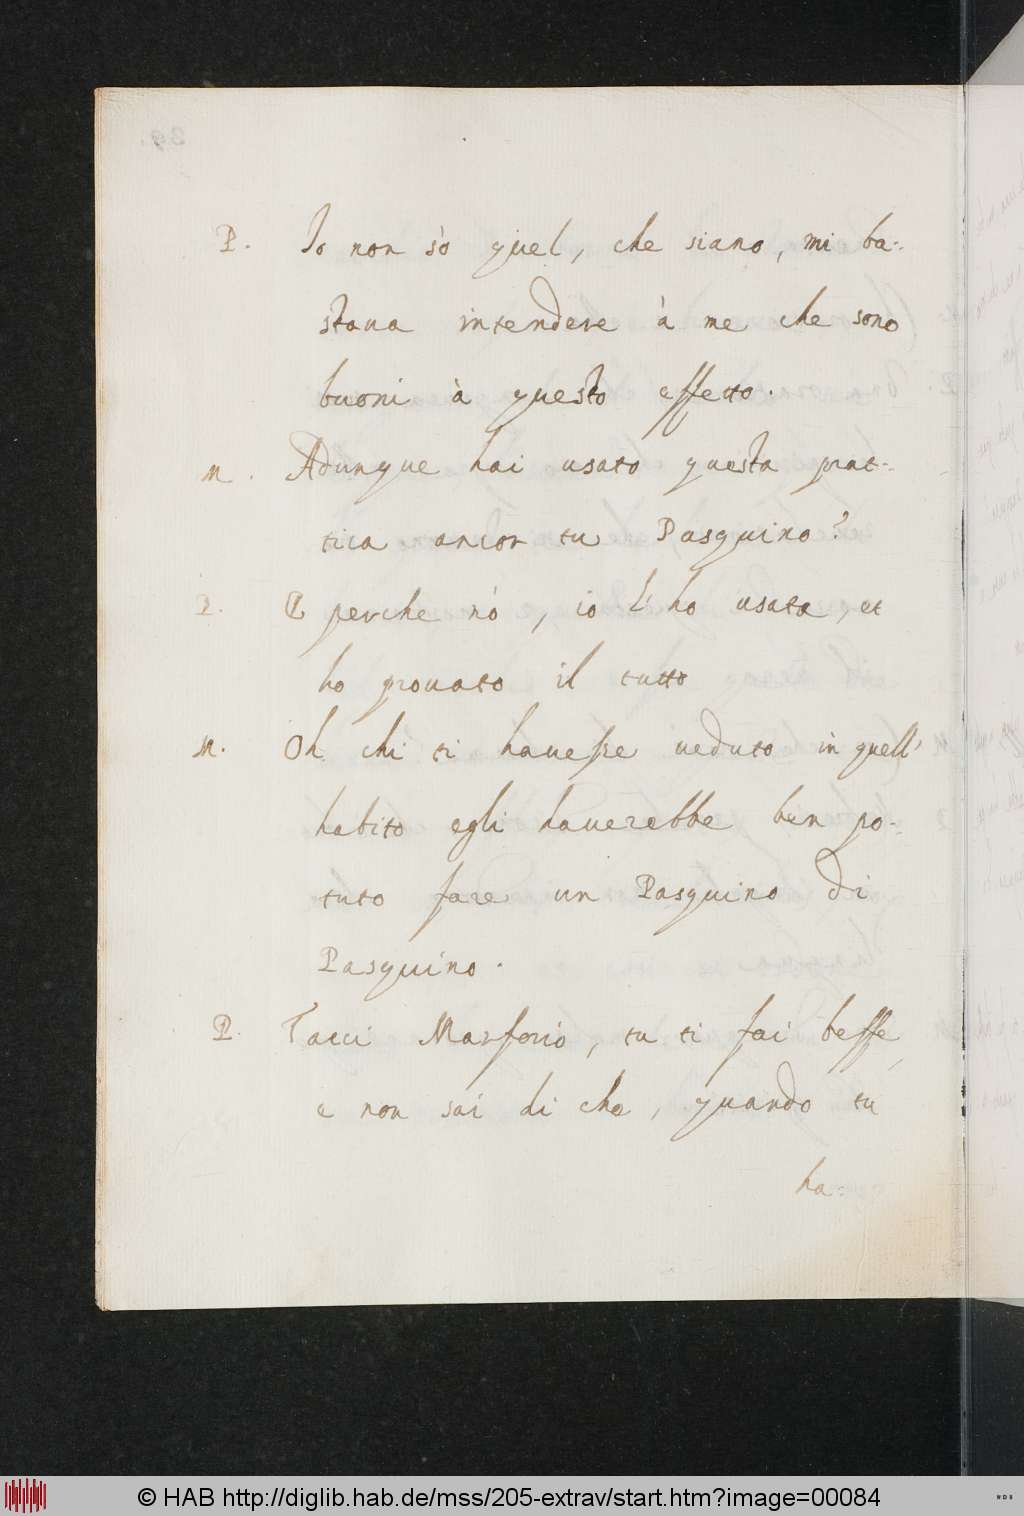 P. Io non sò quel, che siano, mi ba-
staua intendere à me che sono
buoni à questo effetto.
M. Adunque hai usato questa prat-
tica ancor tu Pasquino?
P. E perche nò, io l'ho usata, et
ho prouato il tutto
M. Oh chi ti hauesse ueduto in quell'
habito egli hauerebbe ben po-
tuto fare un Pasquino di
Pasquino.
P. Tacci Marforio, tu ti fai beffe,
e non sai di che, quando tu
ha-
© HAB http://diglib.hab.de/mss/205-extrav/start.htm?image=00084